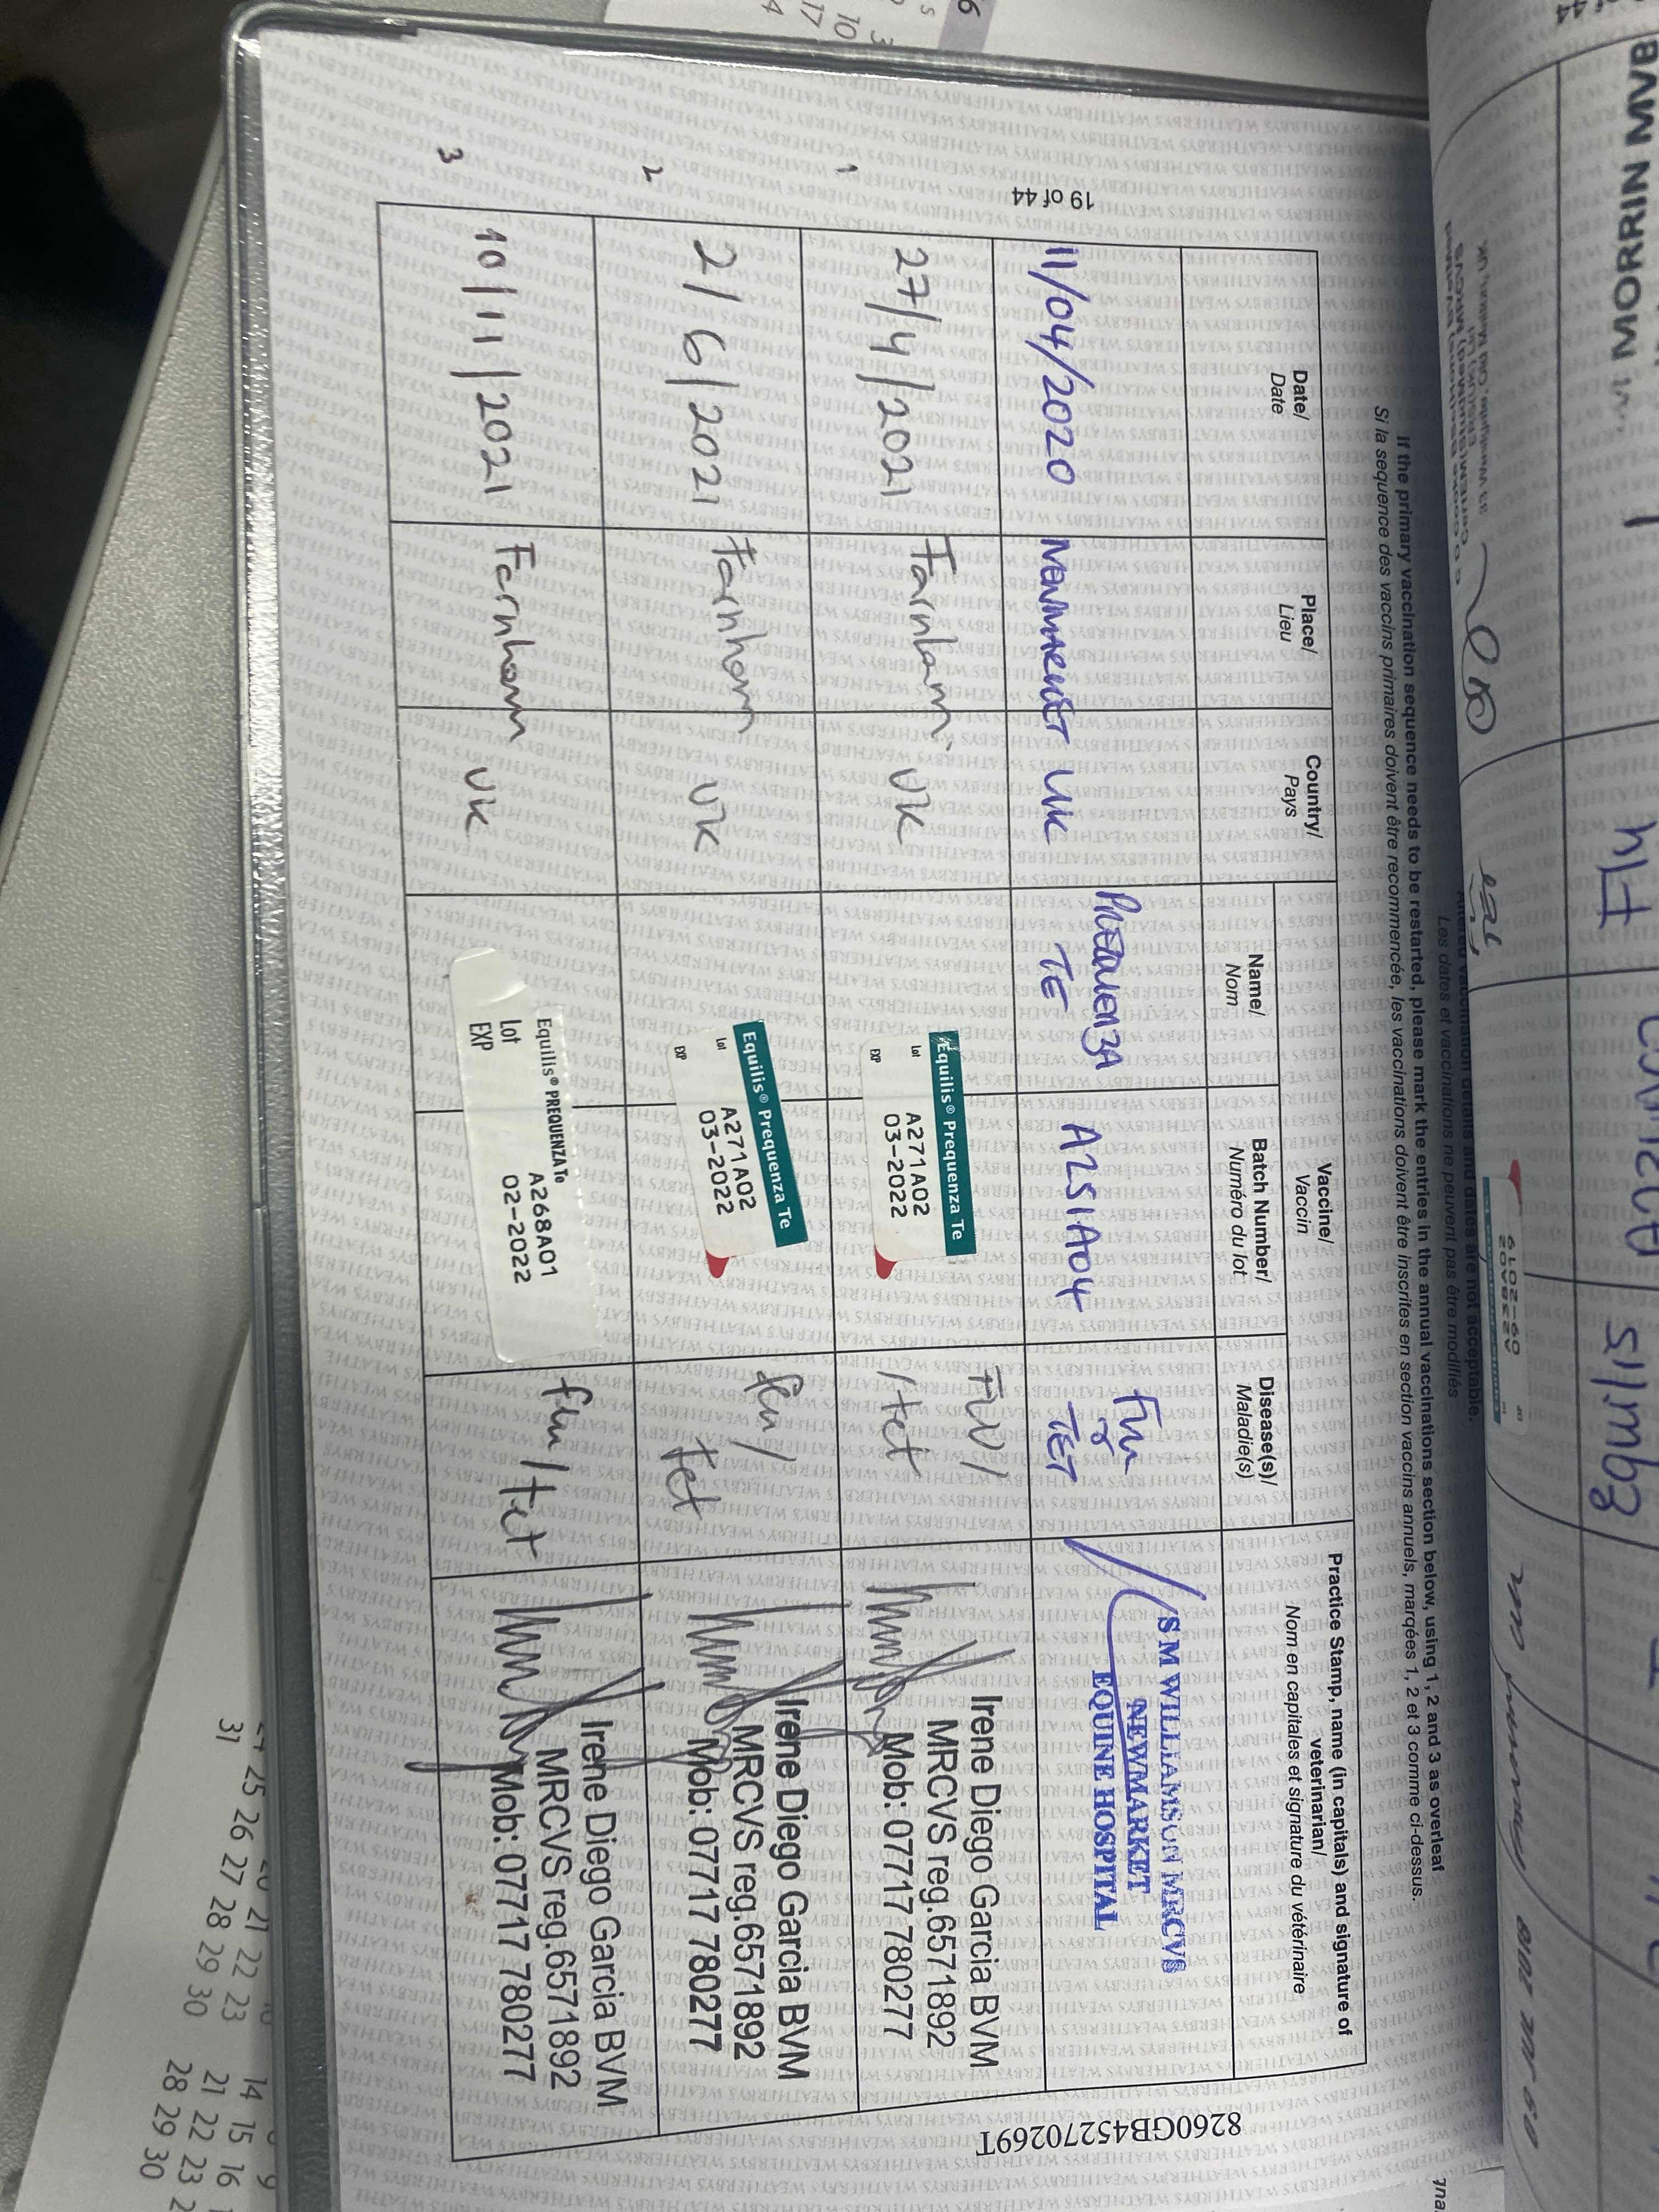 MORRIN MVB
If the primary vaccination sequence needs to be restarted, please mark the entries in the annual vaccinations section below, using 1, 2 and 3 as overleaf
Si la sequence des vaccins primaires doivent être recommencée, les vaccinations doivent être inscrites en section vaccins annuels, marqées 1, 2 et 3 comme ci-dessus.
details and dates are not acceptable.
Les dates et vaccinations ne peuvent pas être modifiés
Date/
Date
Place/
Lieu
Country/
Pays
Vaccine/
Vaccin
Name/
Nom
Batch Number/
Numéro du lot
Disease(s)/
Maladie(s)
Practice Stamp, name (in capitals) and signature of
veterinarian/
Nom en capitales et signature du vétérinaire
11/04/2020 NEWMARKET UK PREQUENZA TE A251A04 Flu & TET
S M WILLIAMSON MRCVS
NEWMARKET
EQUINE HOSPITAL
1 27/4/2021 Farnham. UK
Equilis® Prequenza Te
Lot A271A02
EXP 03-2022
FLU/
/tet
Irene Diego Garcia BVM
MRCVS reg.6571892
Mob: 07717 780277
2 2/6/2021 Farnham UK
Equilis® Prequenza Te
Lot A271A02
EXP 03-2022
flu/
tet
Irene Diego Garcia BVM
MRCVS reg.6571892
Mob: 07717 780277
3 10/11/2021 Farnham UK
Equilis® PREQUENZA Te
Lot A268A01
EXP 02-2022
flu/tet
Irene Diego Garcia BVM
MRCVS reg.6571892
Mob: 07717 780277
19 of 44
8260GB45270269T
14 15 16
21 22 23
28 29 30
25 26 27 28 29 30
31
21 22 23